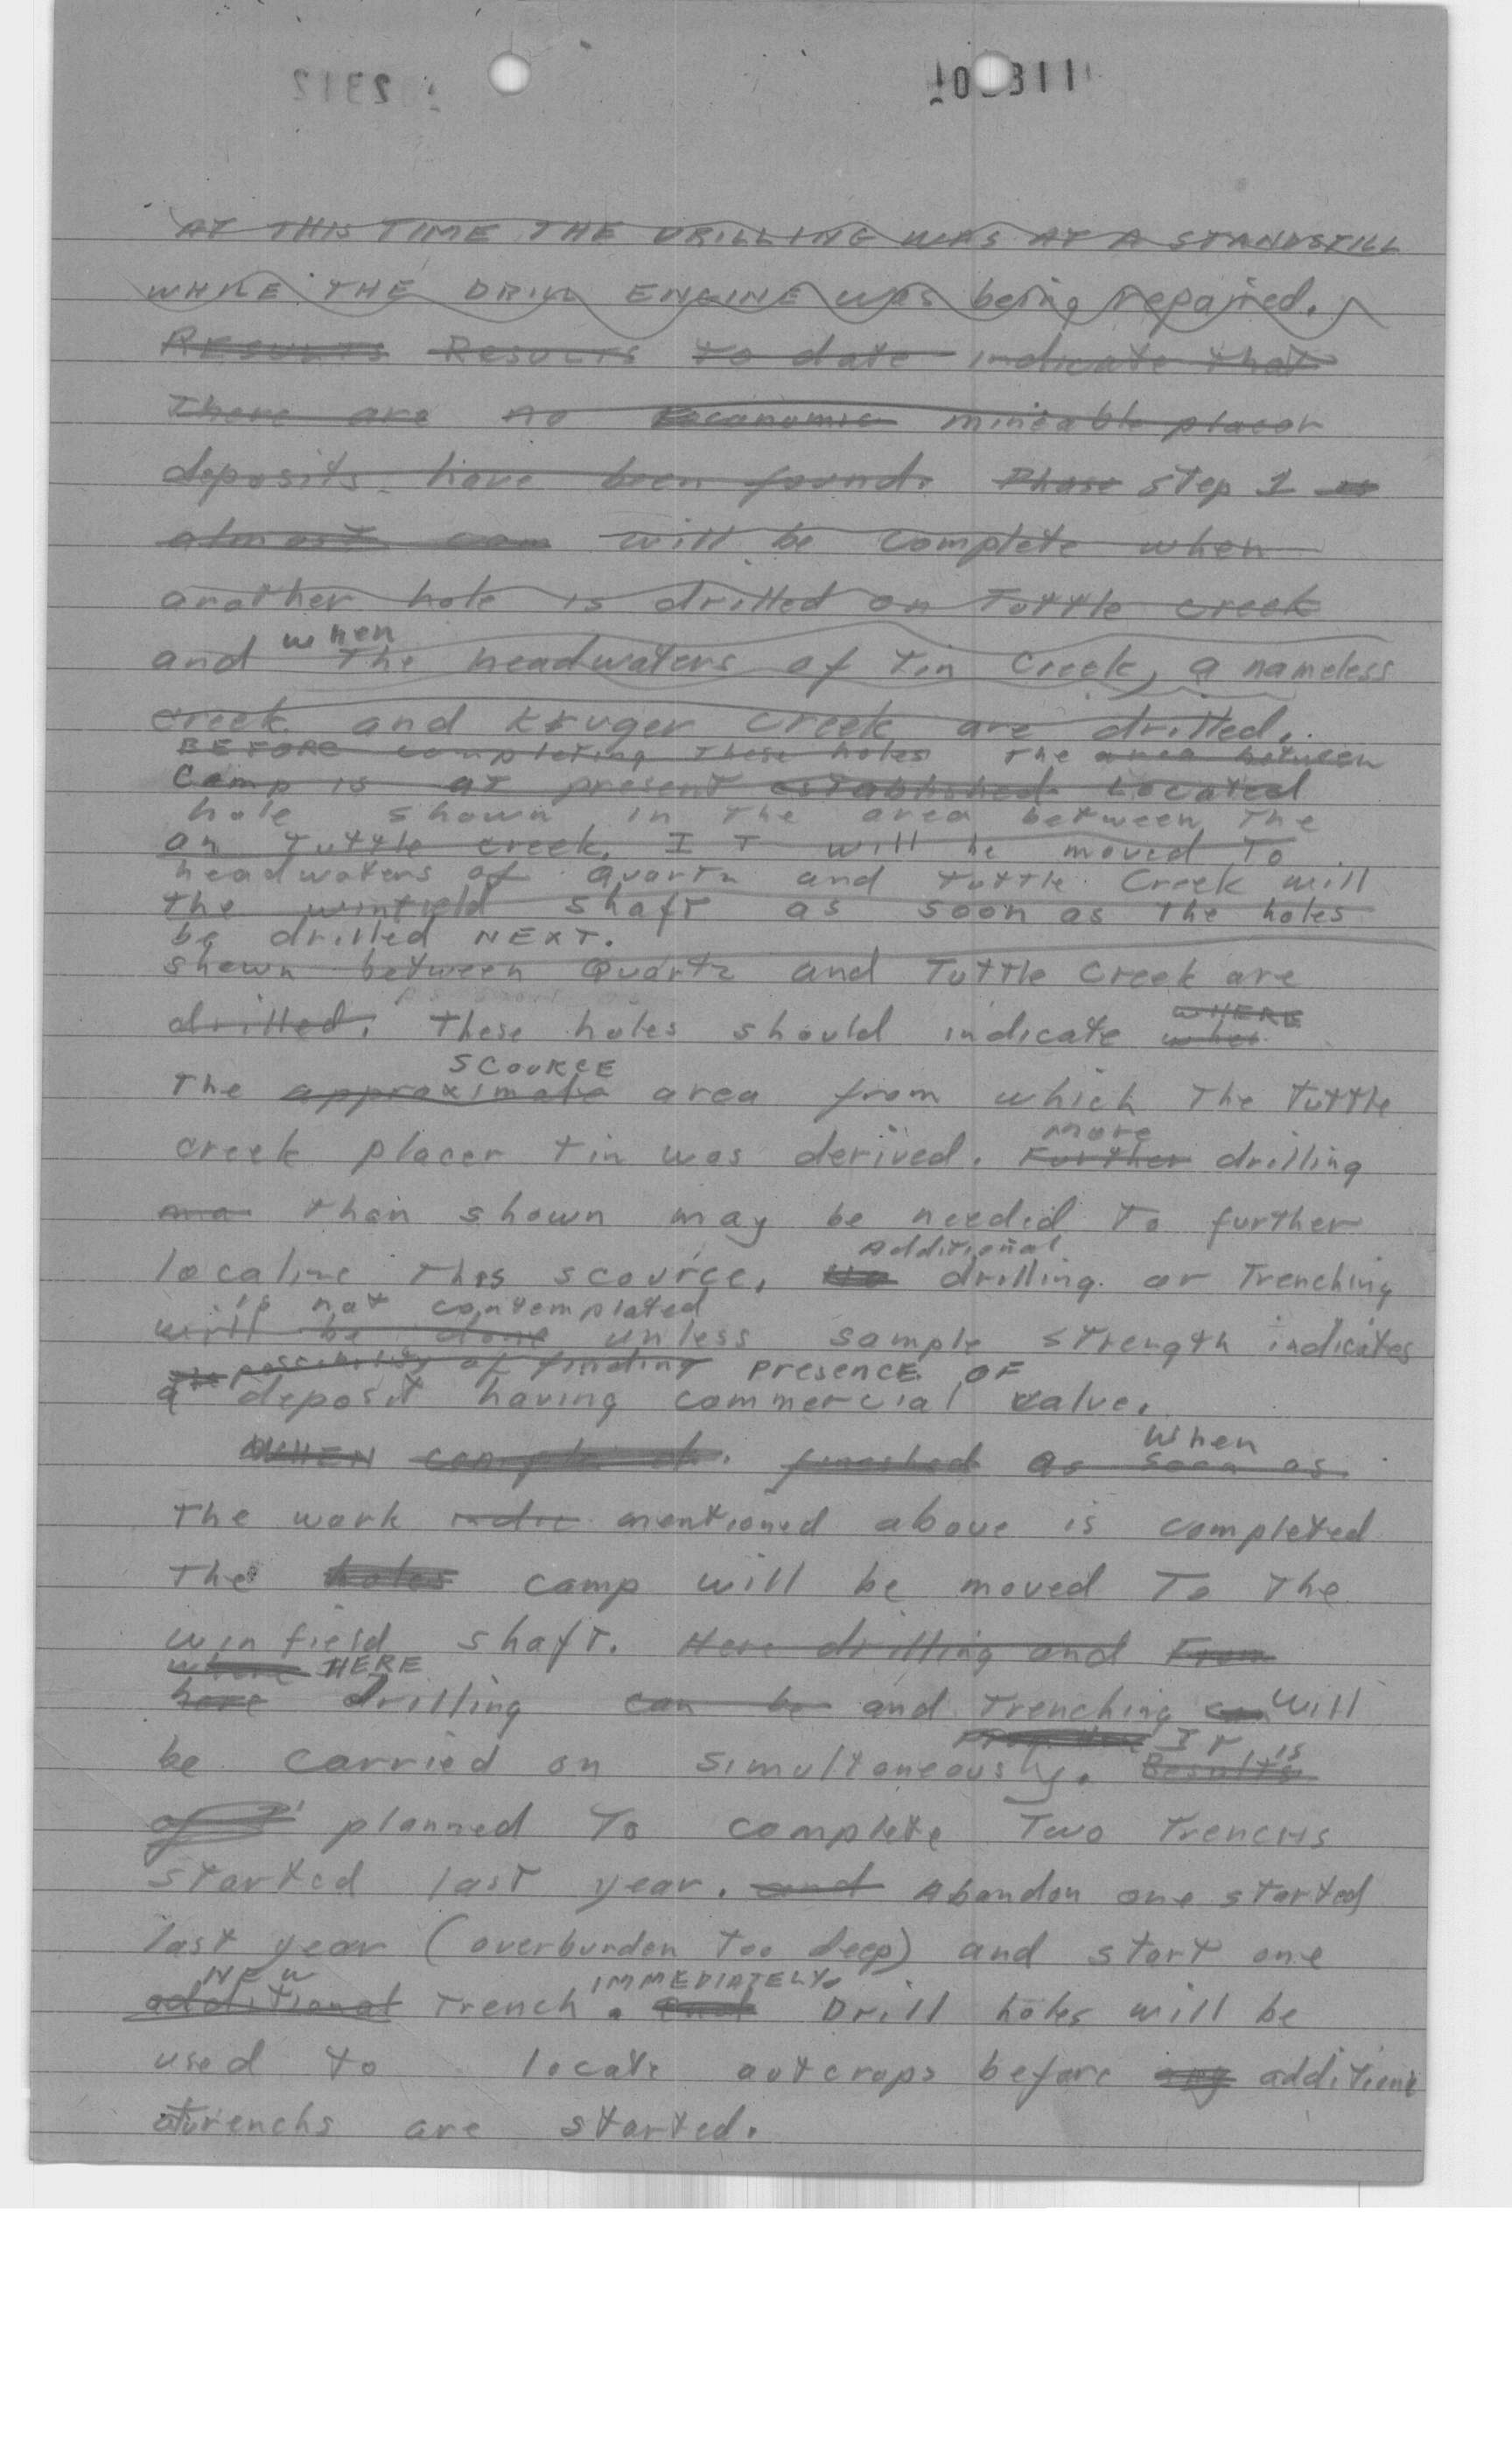 AT THIS TIME THE DRILLING WAS AT A STANDSTILL
WHILE THE DRILL ENGINE was being repaired.
Results Results to date indicate that
There are no Economic mineable placer
deposits have been found. Phase Step 1 is
almost com will be complete when
another hole is drilled on Tuttle creek
when
and The headwaters of Tin Creek, a nameless
creek and Kruger Creek are drilled.
BEFORE completing these holes The area between
Camp is at present established Located
hole shown in The area between The
on Tuttle creek. IT will be moved To
headwaters of Quartz and Tuttle Creek will
the winfield shaft as soon as The holes
be drilled NEXT.
shown between Quartz and Tuttle Creek are
WHERE
drilled. These holes should indicate wher
SCOURCE
The approximate area from which The Tuttle
more
creek placer tin was derived. Further drilling
ma than shown may be needed To further
Additional
localize this scource. No drilling or Trenching
is not contemplated
will be done unless sample strength indicates
possibility of finding PRESENCE OF
a deposit having commercial value.
When
WHEN complete finished as soon as
The work indic mentioned above is completed
The holes camp will be moved To The
winfield shaft. Here drilling and From
where HERE
here drilling can be and Trenching can will
IT is
be carried on simultaneously. Results
of planned To complete Two Trenchs
started last year. and Abandon one started
last year (overburden Too deep) and start one
NEW IMMEDIATELY
additional Trench. Drill holes will be
used to locate outcrops before any additional
trenchs are started.